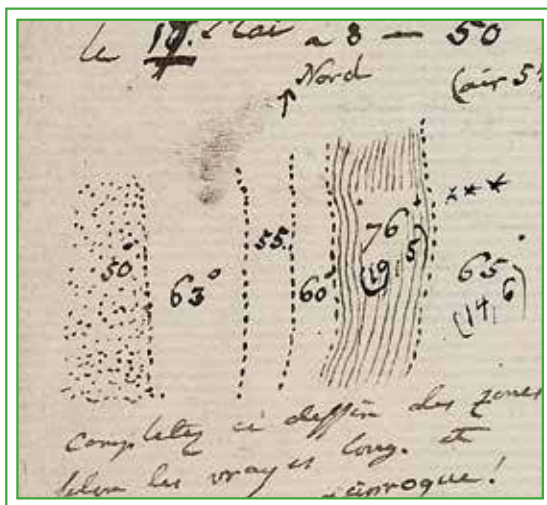 le 17. Mai a 8 — 50
Nord (air 5
50° 63° 55. 60° 76 65°
(19,5) (14,6)
Completez ce dessin des zones
selon les vrayes long. et
reciproque!